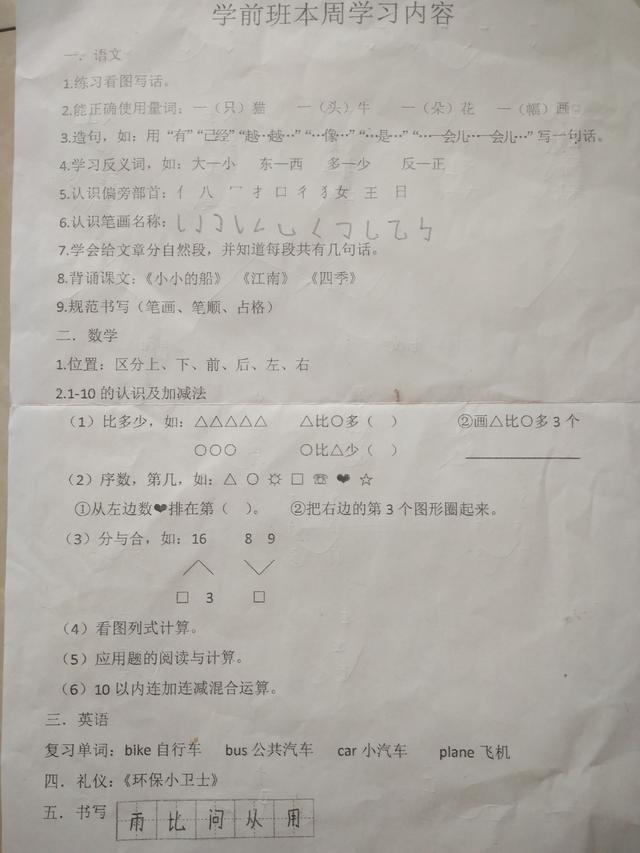 学前班本周学习内容
一．语文
1.练习看图写话。
2.能正确使用量词：一（只）猫 一（头）牛 一（朵）花 一（幅）画
3.造句，如：用“有”“已经”“越…越…”“…像…”“…是…”“…一会儿…一会儿…”写一句话。
4.学习反义词，如：大—小 东—西 多—少 反—正
5.认识偏旁部首：亻 八 冖 扌 口 彳 犭 女 王 日
6.认识笔画名称：
7.学会给文章分自然段，并知道每段共有几句话。
8.背诵课文：《小小的船》 《江南》 《四季》
9.规范书写（笔画、笔顺、占格）
二．数学
1.位置：区分上、下、前、后、左、右
2.1-10 的认识及加减法
（1）比多少，如：△△△△△ △比○多（ ） ②画△比○多 3 个
○○○ ○比△少（ ）
（2）序数，第几，如：△ ○ ☼ □ ☏ ❤ ☆
①从左边数❤排在第（ ）。 ②把右边的第 3 个图形圈起来。
（3）分与合，如：16 8 9
□ 3 □
（4）看图列式计算。
（5）应用题的阅读与计算。
（6）10 以内连加连减混合运算。
三．英语
复习单词：bike 自行车 bus 公共汽车 car 小汽车 plane 飞机
四．礼仪：《环保小卫士》
五．书写 雨 比 问 从 用